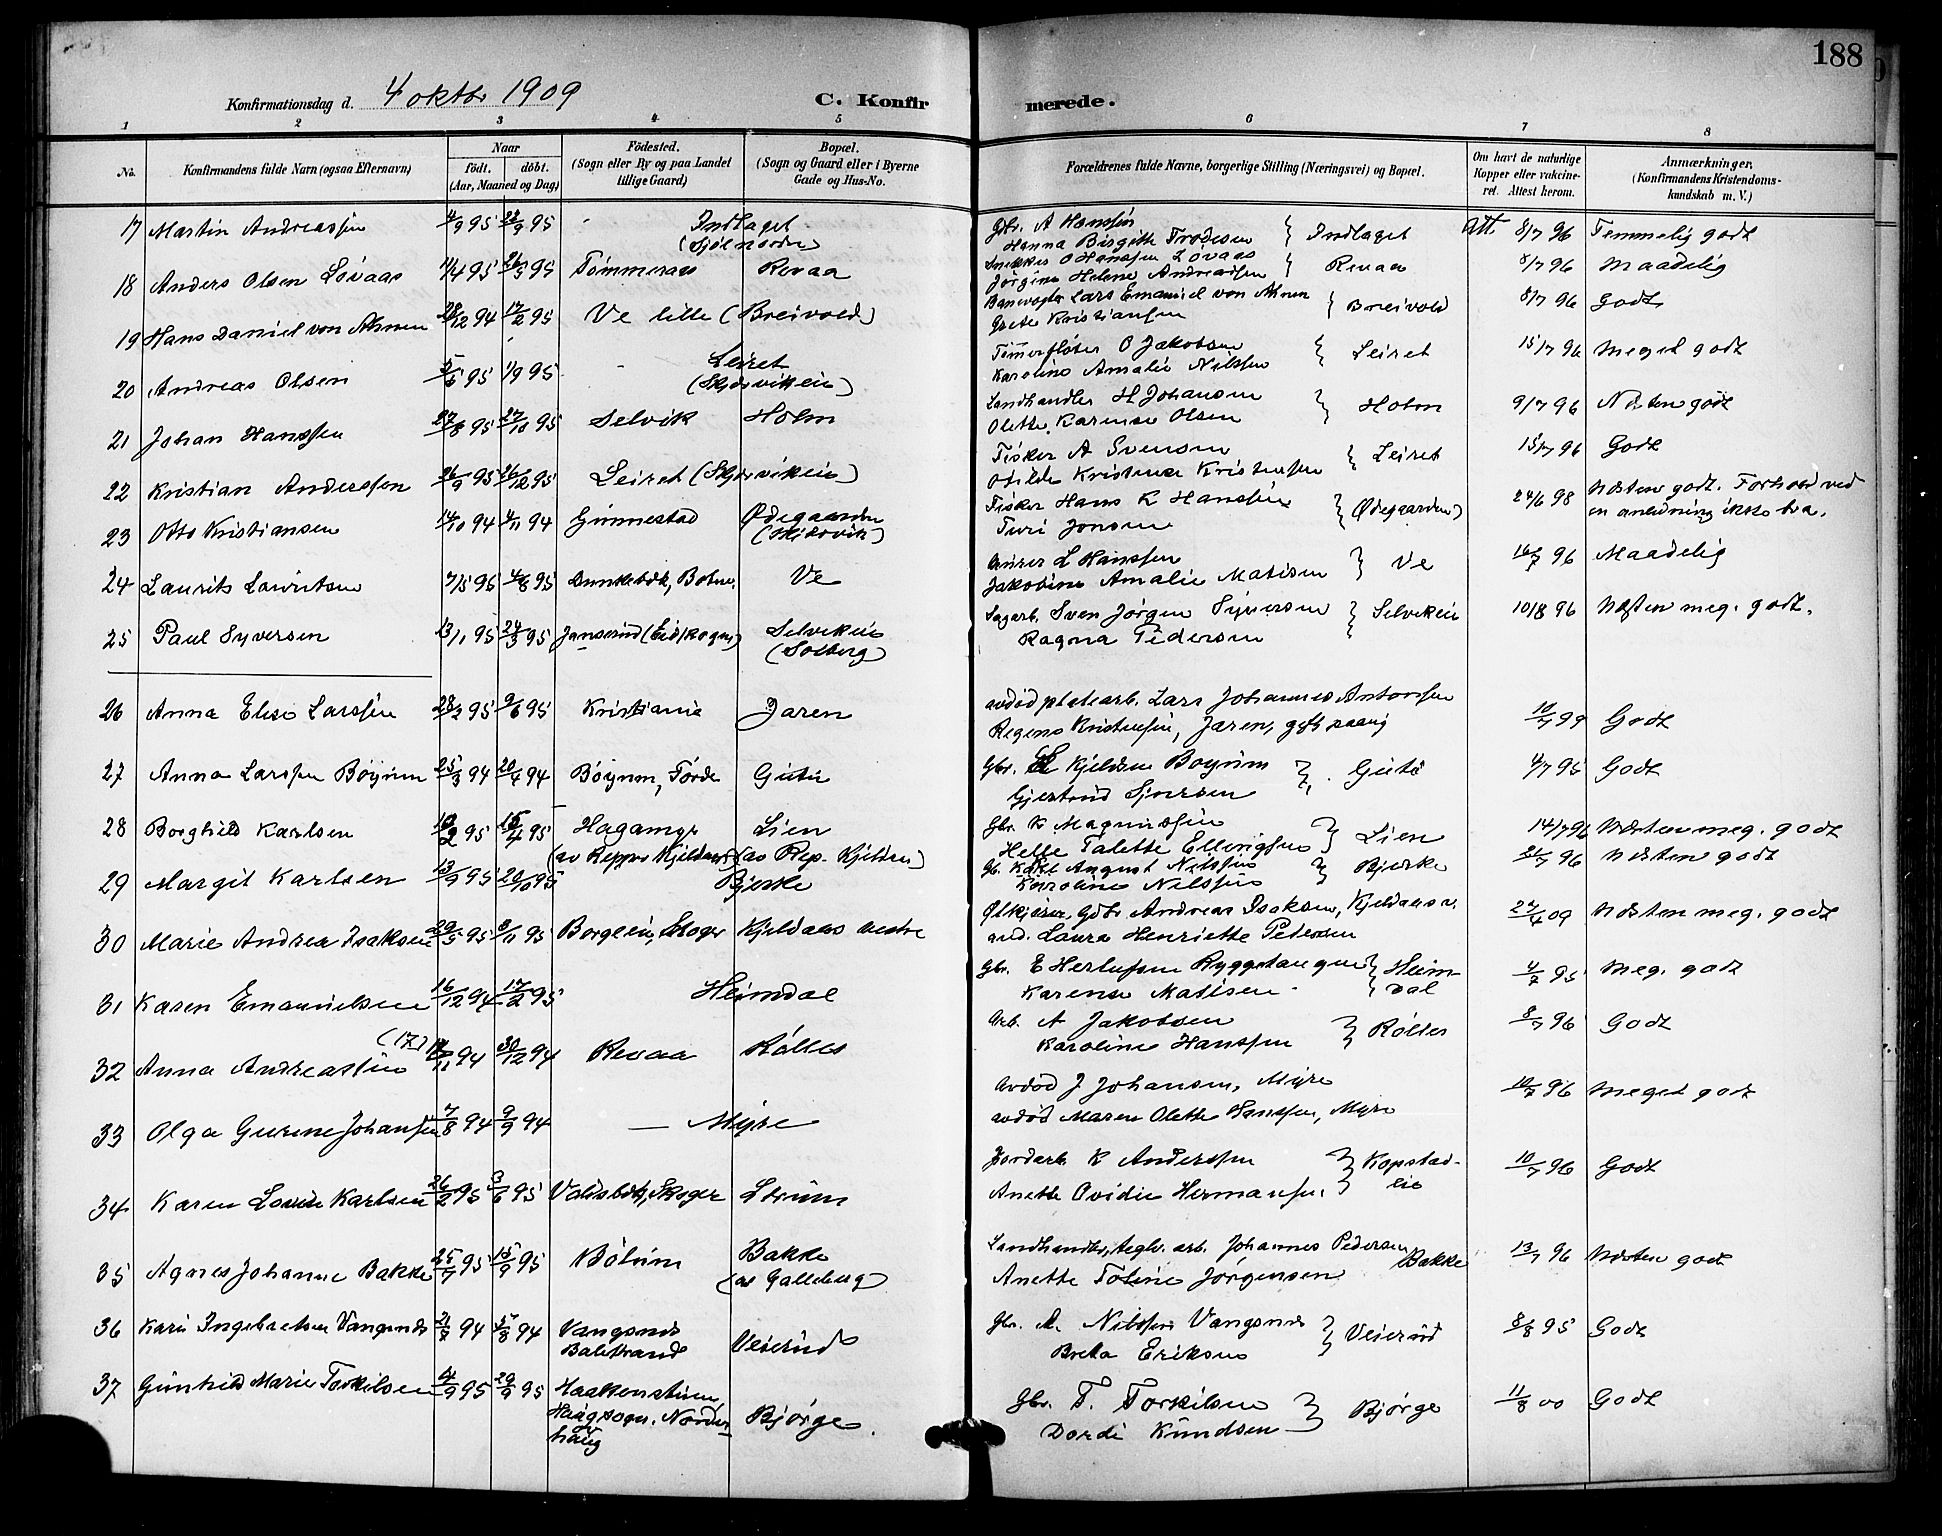 188
Konfirmationsdag d. 4 oktbr 1909
C. Konfirmerede.
1 2 3 4 5 6 7 8
No. Konfirmandens fulde Navn (ogsaa Efternavn) Naar født. døbt. (Aar, Maaned og Dag) Fødested. (Sogn eller By og paa Landet tillige Gaard) Bopæl. (Sogn og Gaard eller i Byerne Gade og Hus-No. Forældrenes fulde Navne, borgerlige Stilling (Næringsvei) og Bopæl. Om havt de naturlige Kopper eller vaccineret. Attest herom. Anmærkninger. (Konfirmandens Kristendomskundskab m. V.)
17 Martin Andreassen 4/9 95 22/9 95 Indlaget Gbr. A Hanssen Indlaget Att 8/7 96 Temmelig godt
Hanna Birgitte
18 Anders Olsen Løvaas 11/4 95 26/5 95 Tømmeraas Revaa Snekker O Hanssen Løvaas Revaa 8/7 96 Maadelig
Jørgine Helene Andreassen
19 Hans Daniel von Ahnen 28/12 94 17/2 95 Ve lille (Breivold) Banevogter Lars Emanuel von Ahnen Breivold 8/7 96 Godt
Grete Kristiansen
20 Andreas Olsen 5/5 95 1/9 95 Leiret Tømerfløter O Jakobsen Leiret 15/7 96 Meget godt
(Skjærvikeie) Karoline Amalie Nilssen
21 Johan Hanssen 27/8 95 27/10 95 Selvik Holm Landhandler H Johansen Holm 9/7 96 Næsten godt
Olette Karense Olsen
22 Kristian Anderssen 26/9 95 26/12 95 Leiret (Skjærvikeie) Fisker A Svensen Leiret 15/7 96 Godt
Otilde Kristense Kristensen
23 Otto Kristiansen 14/10 94 4/11 94 Gunnestad Ødegaarden Fisker Hans K Hanssen (Ødegaarden) 24/6 98 Næsten godt. Forhold ved
Turi Jonsen en anledning ikke bra.
24 Laurits Lauritsen 7/5 95 4/8 95 Ve L Hanssen Ve 16/7 96 Maadelig
Jakobine Amalie Matisen
25 Paul Syversen 13/1 95 24/3 95 Janserud (Eidskogen) Selvikeie Sagarb. Sven Jørgen Syversen Selvikeie 10/8 96 Næsten meg. godt.
(Solberg) Ragna Pedersen
26 Anna Elise Larssen 28/2 95 9/6 95 Kristiania Jaren avdød platearb. Lars Johannes Antonsen 10/7 99 Godt
Regine Kristensen, Jaren, gift paany
27 Anna Larssen Bøyum 25/3 94 20/4 94 Bøyum, Førde Gutu Gbr. L Kjeldsen Bøyum Gutu 4/7 95 Godt
Gjertrud Sjursen
28 Borghild Karlsen 10/2 95 15/4 95 Hagamyr Lien Gbr. K Magnussen Lien 14/7 96 Næsten meg. godt
Helle Talette Ellingsen
29 Margit Karlsen 13/9 95 20/10 95 Bjerke Gb. Karl August Nilssen Bjerke 21/7 96 Næsten godt
Karoline Nilssen
30 Marie Andrea Isaksen 29/5 95 8/11 95 Borgeeie, Skoger Kjeldaas vestre Ølkjører, Gbr Andreas Isaksen, Kjeldaas v. 27/4 09 Næsten meg. godt
avd. Laura Henriette Petersen
31 Karen Emanuelsen 16/12 94 17/2 95 Heimdal Gbr. E Herlufsen Ryggetangen Heimdal 4/7 95 Meg. godt
Karense Matisen
32 Anna Andreassen (17) 11 94 30/12 94 Revaa Rølles Arb. A Jakobsen Rølles 8/7 96 Godt
Karoline Hanssen
33 Olga Gurine Johansen 7/8 94 9/9 94 — Myre Avdød J Johansen, Myre 10/7 96 Meget godt
avdød Maren Olette Hanssen, Myre
34 Karen Lovise Karlsen 26/2 95 3/6 95 Valdsbæk, Skoger Jordarb K Anderssen Kopstadlie 10/7 96 Godt
Anette Ovidie Hermansen.
35 Agnes Johanne Bakke 25/7 95 15/9 95 Bølum Bakke Landhandler, teglv. arb. Johannes Pedersen Bakke 13/7 96 Næsten godt
(av Galleberg) Anette Toline Jørgensen
36 Kari Ingebretsen Vangsnes 21/7 94 5/8 94 Vangsnes Veierud Gbr. A. Nilssen Vangsnes Veierud 8/8 95 Godt
Balestrand Brita Eriksen
37 Gunhild Marie Torkilsen 4/9 95 29/9 95 Haakenstuen Bjørge. Gbr. T. Torkilsen Bjørge 11/8 00 Godt
Haugsogn. Norderhaug Dordi Knudsen